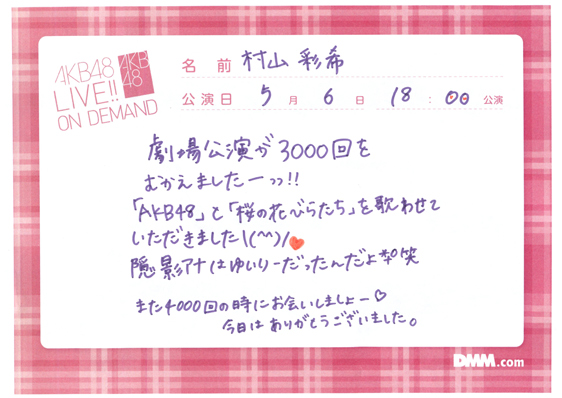 AKB48
LIVE!!
ON DEMAND
AKB
48
名前 村山 彩希
公演日 5月 6日 18:00公演
劇場公演が3000回を
むかえましたーっっ!!
「AKB48」と「桜の花びらたち」を歌わせて
いただきました\(^^)/
隠影アナはゆいりーだったんだよ 笑
また4000回の時にお会いしましょー♡
今日はありがとうございました。
DMM.com